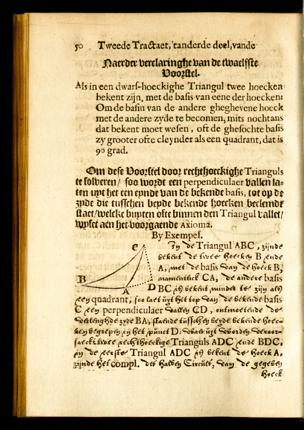 50 Tweede Tractaet, tanderde deel, vande
Naerder verclaringhe van de twaelfste
Voorstel.
Als in een dwars-hoeckighe Triangul twee hoecken
bekent zijn, met de basis van eene der hoecken:
Om de basis van de andere gheghevene hoeck
met de andere zyde te becomen, mits nochtans
dat bekent moet wesen, oft de ghesochte basis
zy grooter ofte cleynder als een quadrant, dat is
90 grad.
Om dese Voorstel door rechthoeckighe Trianguls
te solveren / soo wordt een perpendiculaer vallen la-
ten uyt het een eynde van de bekende basis, tot op de
zyde die tusschen beyde bekende hoecken beclemdt
staet / welcke buyten ofte binnen den Triangul vallet /
wyset aen het voorgaende Axioma.
By Exempel.
C
In de Triangul ABC, zijnde
bekent de twee hoecken B ende
A, met de basis van de hoeck B,
namentlick CA, de andere basis
B
D
BC zy bekent minder te zijn als
een quadrant, soo laet uyt het top van de bekende basis
C een perpendiculaer vallen CD, ontmoetende de
zyde BA,
D.
Trianguls ADC ende BDC,
in de eerste Triangul ADC zy bekent de hoeck A,
zijnde het compl. der halven Circuls, van de gegeven
hoeck